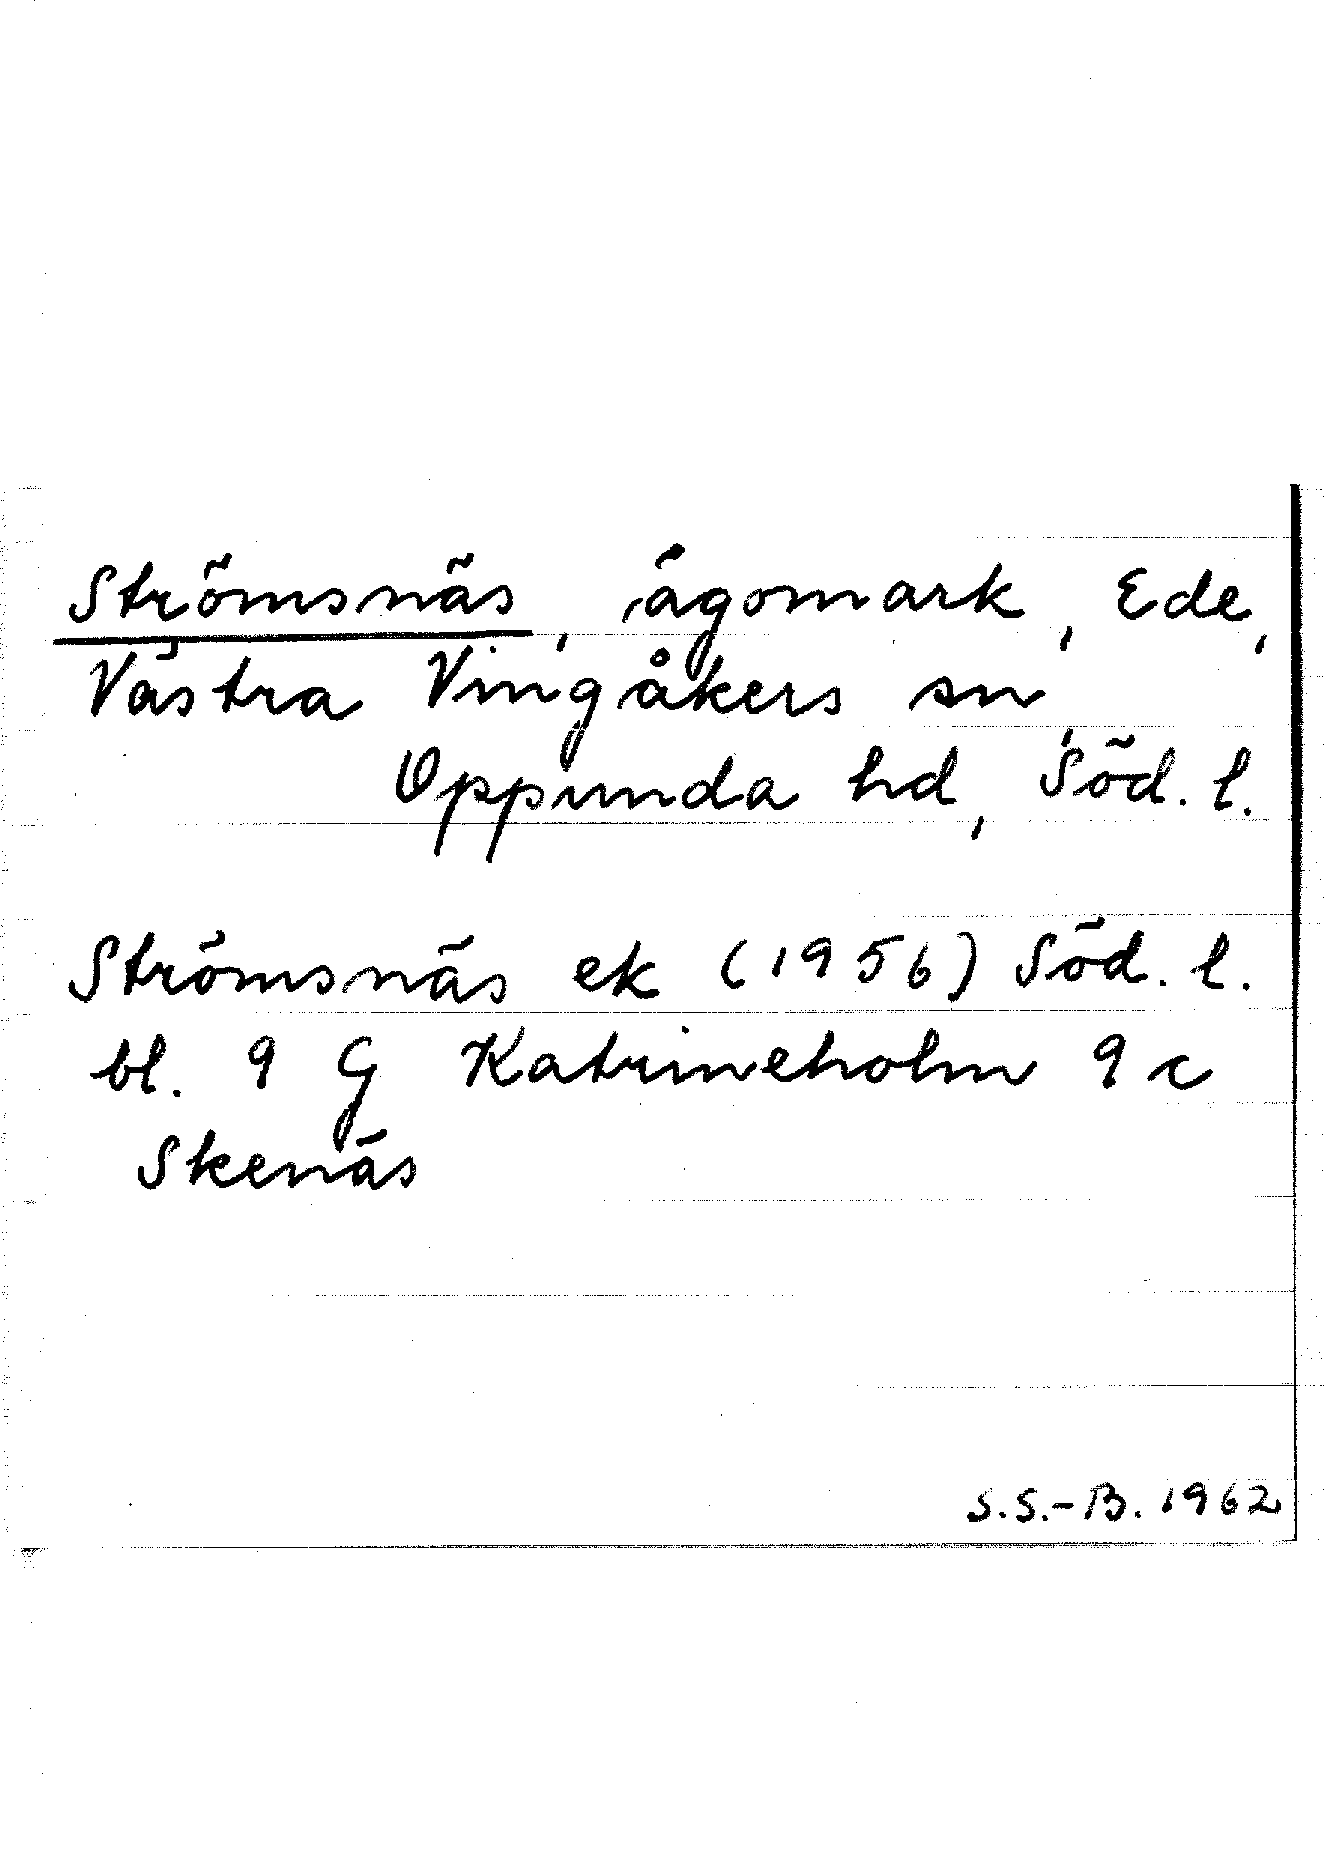 Strömsnäs, ägomark, Ede,
Västra Vingåkers sn,
Oppunda hd, Söd. l.
Strömsnäs ek (1956) Söd. l.
bl. 9 G Katrineholm 9 c
Skenäs
S.S.-B. 1962